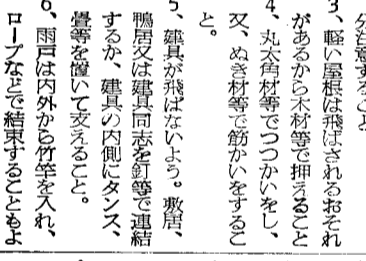 分注意すること
3、軽い屋根は飛ばされるおそれ
があるから木材等で押えること
4、丸太角材等でつつかいをし、
又、ぬき材等で筋かいをするこ
と。
5、建具が飛ばないよう。敷居、
鴨居又は建具同志を釘等で連結
するか、建具の内側にタンス、
畳等を置いて支えること。
6、雨戸は内外から竹竿を入れ、
ロープなどで結束することもよ